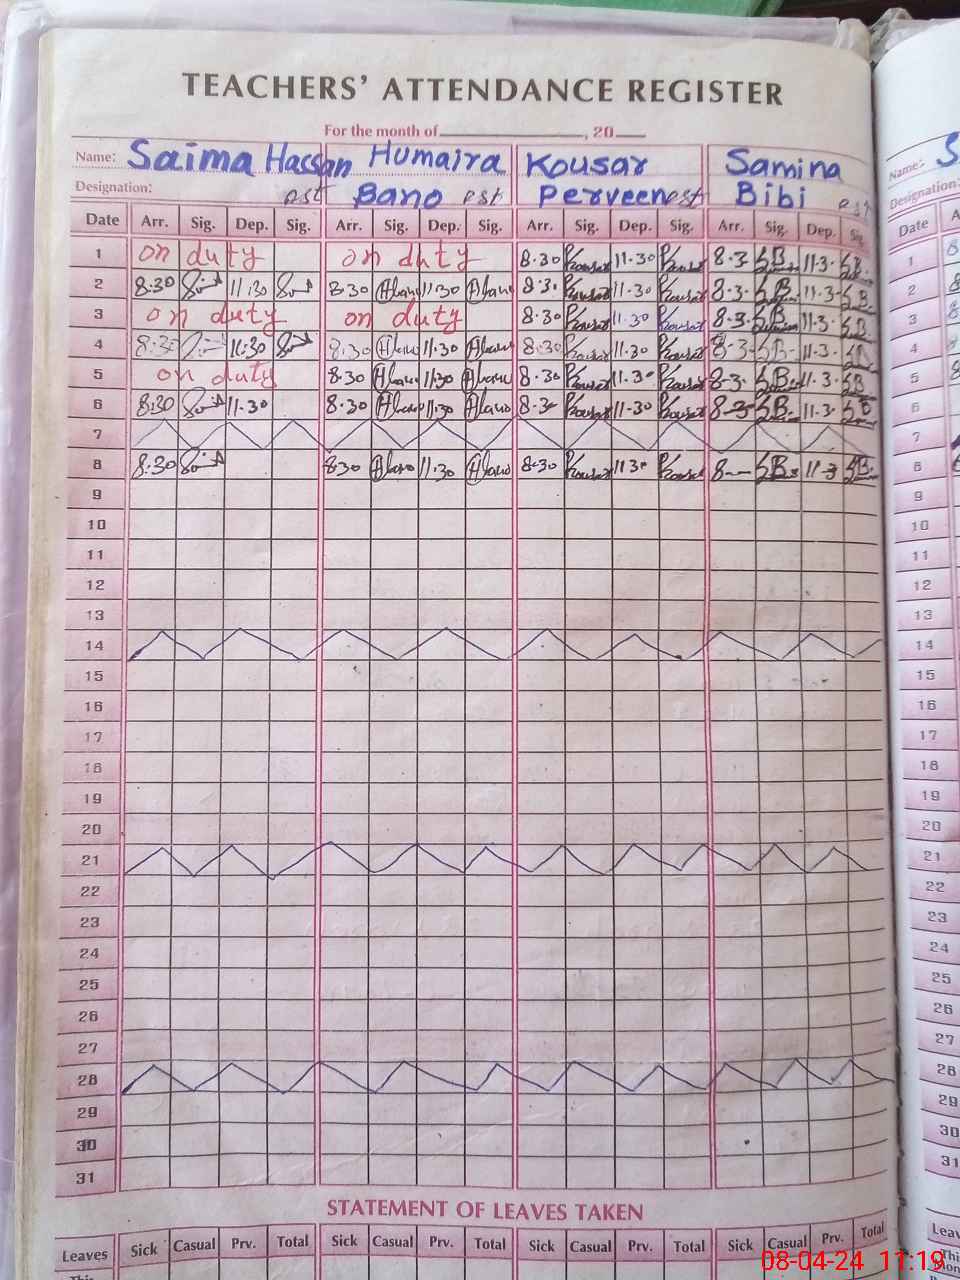 TEACHERS' ATTENDANCE REGISTER
For the month of , 20
Name: Saima Hassan Humaira Kousar Samina
Designation: PST Bano PST Perveen PST Bibi PST
Date Arr. Sig. Dep. Sig. Arr. Sig. Dep. Sig. Arr. Sig. Dep. Sig. Arr. Sig. Dep. Sig.
1 on duty on duty 8.30 Kousar 11.30 Kousar 8.3 SB 11.3 SB
2 8.30 11:30 8.30 Hbano 11.30 Hbano 8.3 Kousar 11.30 Kousar 8.3 SB 11.3 SB
3 on duty on duty 8.30 Kousar 11.30 Kousar 8.3 SB 11.3 SB
4 8:30 11:30 8:30 Hbano 11.30 Hbano 8.30 Kousar 11.30 Kousar 8.3 SB 11.3
5 on duty 8.30 Hbano 11.30 Hbano 8.30 Kousar 11.30 Kousar 8.3 SB 11.3 SB
6 8:30 11.30 8.30 Hbano 11.30 Hbano 8.3 Kousar 11.30 Kousar 8.3 SB 11.3 SB
7
8 8:30 830 Hbano 11.30 Hbano 8.30 Kousar 113 Kousar 8 SB 11.3 SB
9
10
11
12
13
14
15
16
17
18
19
20
21
22
23
24
25
26
27
28
29
30
31
STATEMENT OF LEAVES TAKEN
Leaves Sick Casual Prv. Total Sick Casual Prv. Total Sick Casual Prv. Total Sick Casual Prv. Total
This
Name: S
Designation:
Date A
1
2
3
4
5
6
7
8
9
10
11
12
13
14
15
16
17
18
19
20
21
22
23
24
25
26
27
28
29
30
31
08-04-24 11:19